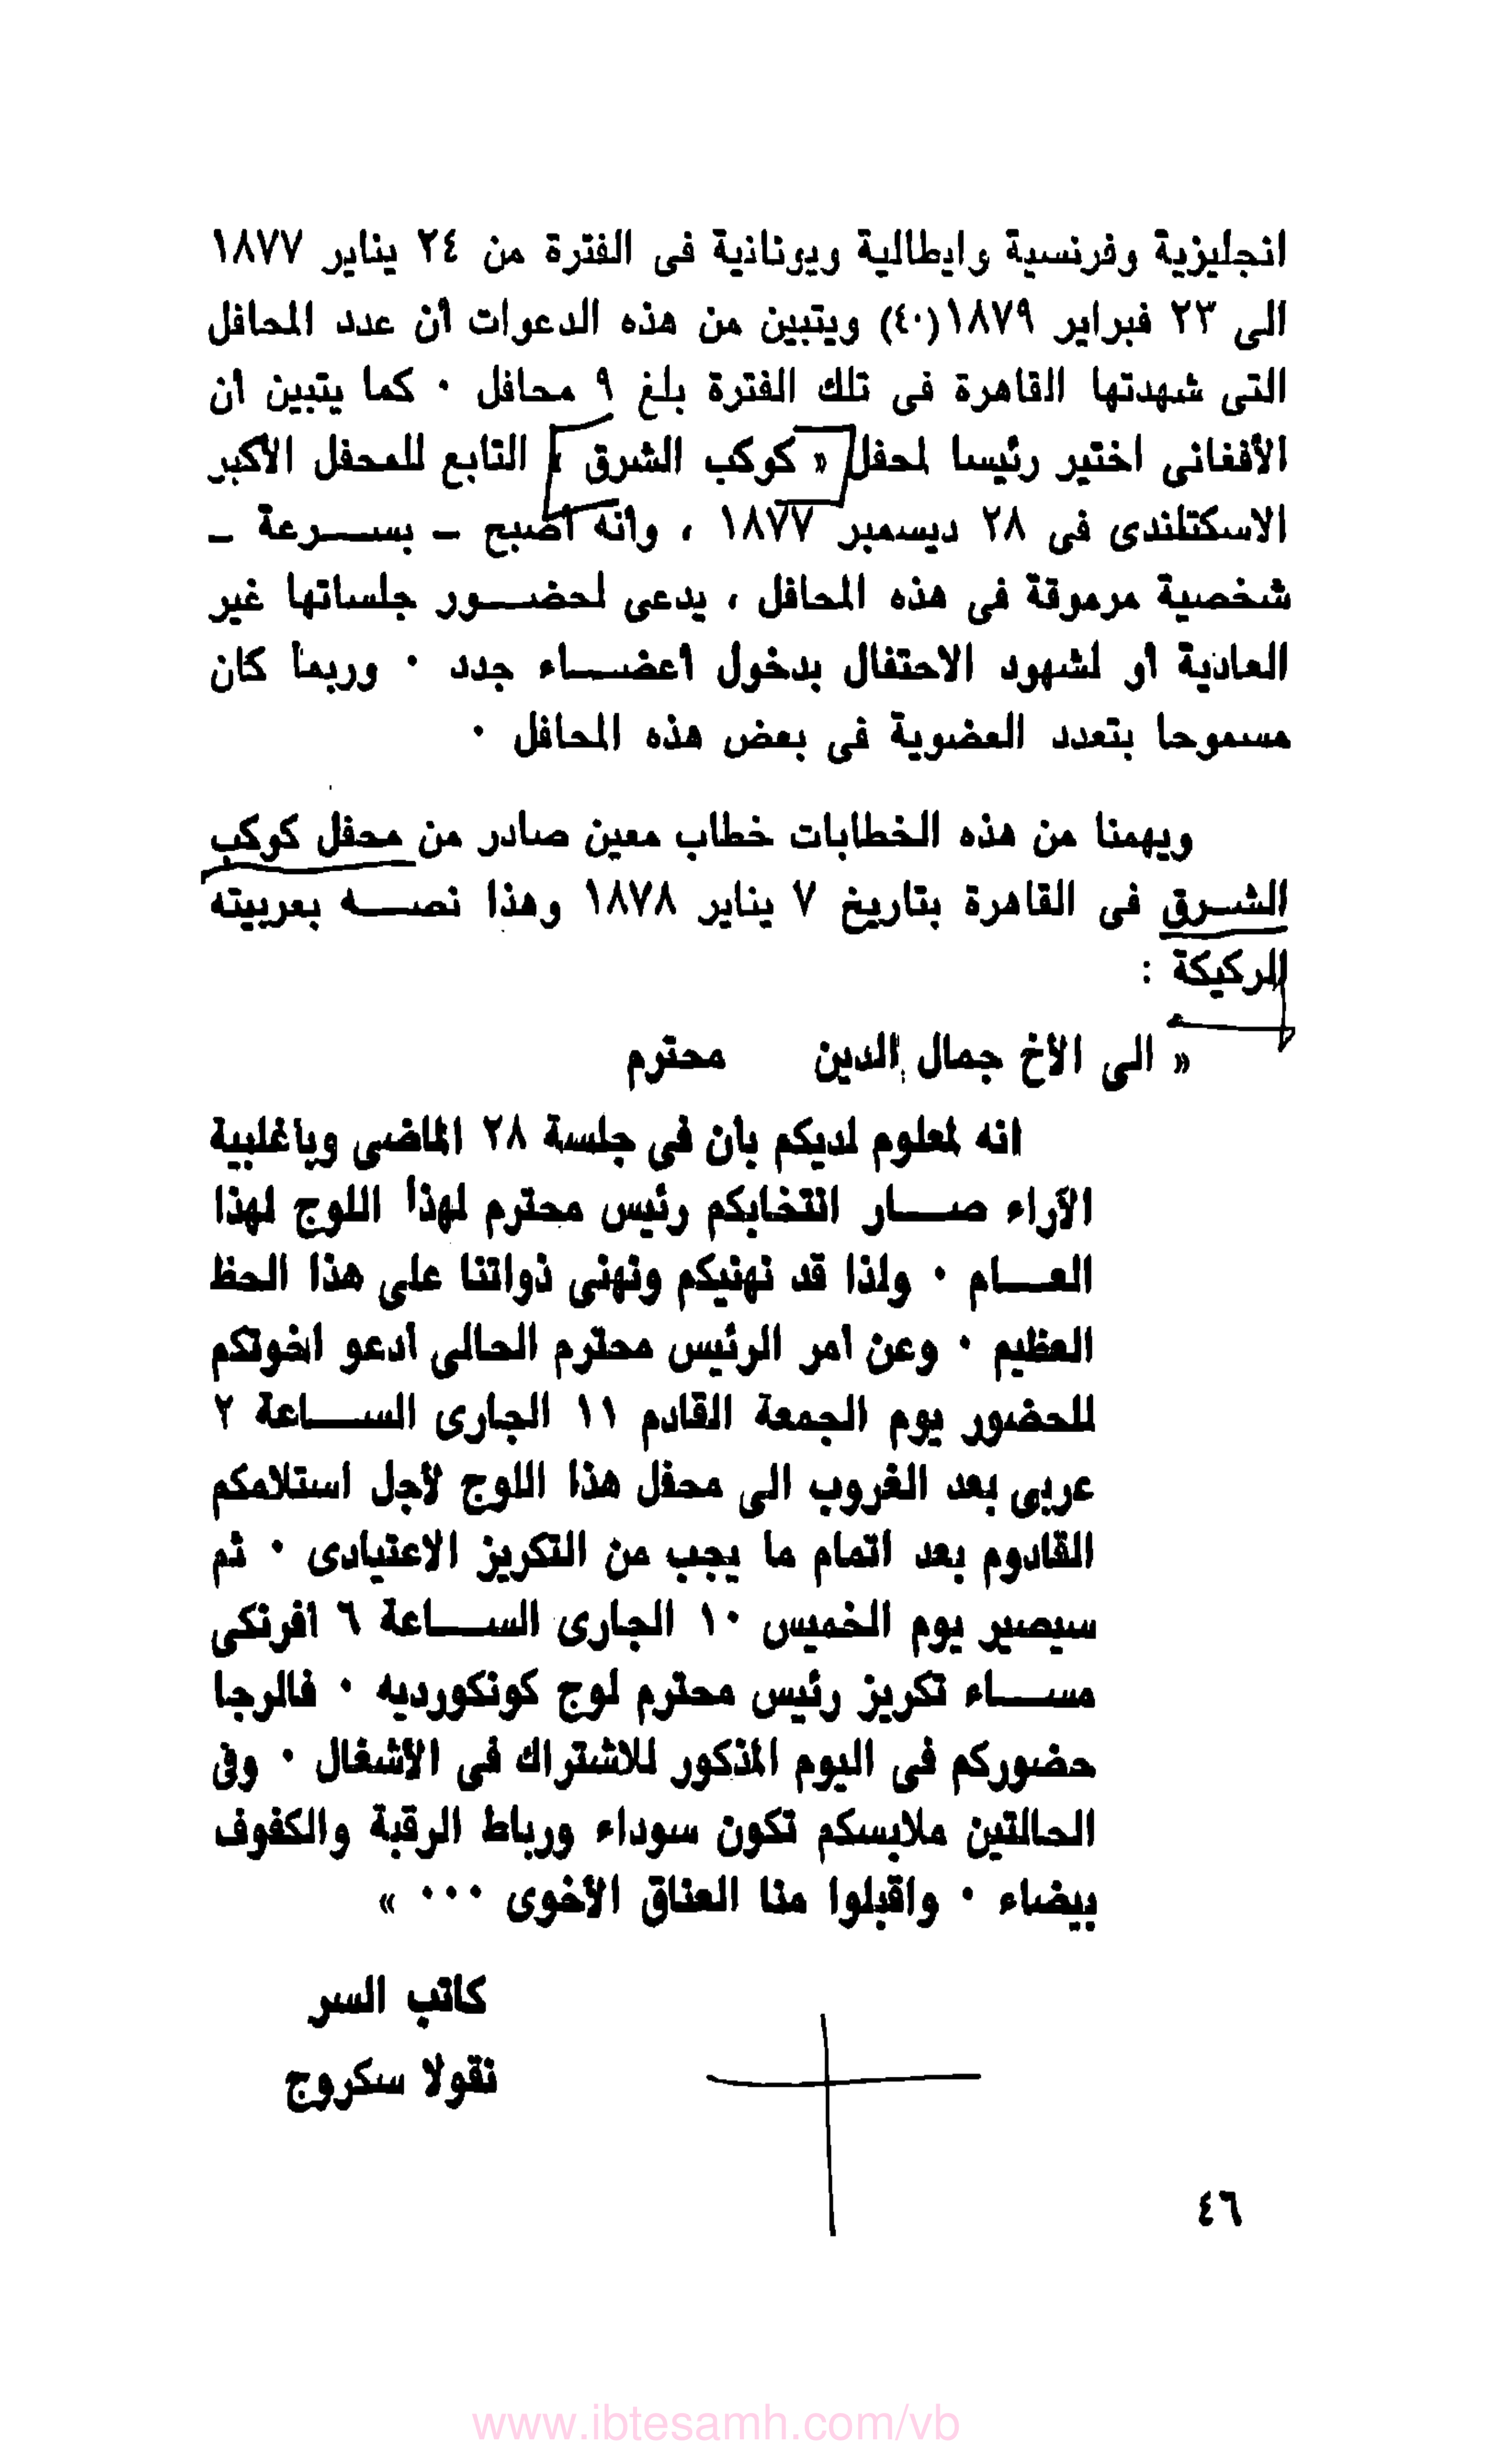 انجليزية وفرنسية وايطالية ويونانية فى الفترة من ٢٤ يناير ١٨٧٧
الى ٢٣ فبراير ١٨٧٩(٤٠) ويتبين من هذه الدعوات أن عدد المحافل
التى شهدتها القاهرة فى تلك الفترة بلغ ٩ محافل ٠ كما يتبين أن
الأفغانى اختير رئيسا لمحفل « كوكب الشرق » التابع للمحفل الأكبر
الاسكتلندى فى ٢٨ ديسمبر ١٨٧٧ ، وأنه أصبح – بســرعة –
شخصية مرموقة فى هذه المحافل ، يدعى لحضــور جلساتها غير
العادية أو لشهود الاحتفال بدخول أعضــاء جدد ٠ وربما كان
مسموحا بتعدد العضوية فى بعض هذه المحافل ٠
ويهمنا من هذه الخطابات خطاب معين صادر من محفل كوكب
الشــرق فى القاهرة بتاريخ ٧ يناير ١٨٧٨ وهذا نصــه بعربيته
الركيكة :
« الى الأخ جمال الدين محترم
انه لمعلوم لديكم بأن فى جلسة ٢٨ الماضى وباغلبية
الآراء صــار انتخابكم رئيس محترم لهذا اللوج لهذا
العــام ٠ ولذا قد نهنيكم ونهنى ذواتنا على هذا الحظ
العظيم ٠ وعن أمر الرئيس محترم الحالى أدعو اخوتكم
للحضور يوم الجمعة القادم ١١ الجارى الســاعة ٢
عربى بعد الغروب الى محفل هذا اللوج لأجل استلامكم
القادوم بعد اتمام ما يجب من التكريز الاعتيادى ٠ ثم
سيصير يوم الخميس ١٠ الجارى الســاعة ٦ افرنكى
مســاء تكريز رئيس محترم لوج كونكورديه ٠ فالرجا
حضوركم فى اليوم المذكور للاشتراك فى الأشغال ٠ وفى
الحالتين ملابسكم تكون سوداء ورباط الرقبة والكفوف
بيضاء ٠ واقبلوا منا العناق الأخوى ٠٠٠ »
كاتب السر
نقولا سكروج
٤٦
www.ibtesamh.com/vb